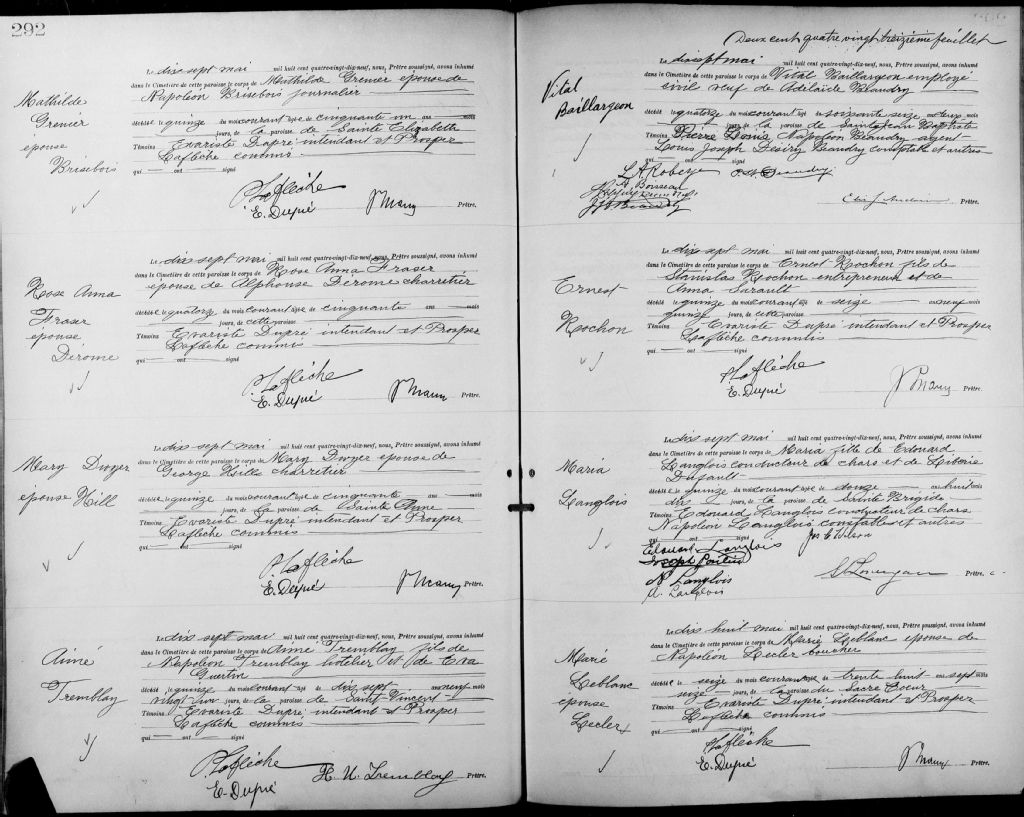 292
Mathilde
Grenier
epouse
Brisebois
Le dix sept mai mil huit cent quatre-vingt-dix-neuf, nous, Prêtre soussigné, avons inhumé
dans le Cimetière de cette paroisse le corps de Mathilde Grenier epouse de
Napoleon Brisebois journalier
décédée le quinze du mois courant âgée de cinquante un ans mois
jours, de la paroisse de Sainte Elizabeth
Témoins Evariste Dupré intendant et Prosper
Laflèche commis
qui ont signé
P Laflèche
E. Dupré
Prêtre.
Rose Anna
Fraser
epouse
Derome
Le dix sept mai mil huit cent quatre-vingt-dix-neuf, nous, Prêtre soussigné, avons inhumé
dans le Cimetière de cette paroisse le corps de Rose Anna Fraser
epouse de Alphonse Derome charretier
décédée le quatorze du mois courant âgée de cinquante ans mois
jours, de cette paroisse
Témoins Evariste Dupré intendant et Prosper
Laflèche commis
qui ont signé
P Laflèche
E. Dupré
Prêtre.
Mary Dwyer
épouse Hill
Le dix sept mai mil huit cent quatre-vingt-dix-neuf, nous, Prêtre soussigné, avons inhumé
dans le Cimetière de cette paroisse le corps de Mary Dwyer epouse de
George Hill charretier
décédée le quinze du mois courant âgée de cinquante ans mois
jours, de la paroisse de Sainte Anne
Témoins Evariste Dupré intendant et Prosper
Laflèche commis
qui ont signé
P Laflèche
E. Dupré
Prêtre.
Aimé
Tremblay
Le dix sept mai mil huit cent quatre-vingt-dix-neuf, nous, Prêtre soussigné, avons inhumé
dans le Cimetière de cette paroisse le corps de Aimé Tremblay fils de
Napoleon Tremblay hotelier et de Eva
Guertin
décédé le quinze du mois courant âgé de dix sept ans neuf mois
vingt un jours, de la paroisse de Saint Vincent
Témoins Evariste Dupré intendant et Prosper
Laflèche commis
qui ont signé
P Laflèche
E. Dupré
H. U. Tremblay Prêtre.
Deux cent quatre vingt treizième feuillet
Vital
Baillargeon
Le dix sept mai mil huit cent quatre-vingt-dix-neuf, nous, Prêtre soussigné, avons inhumé
dans le Cimetière de cette paroisse le corps de Vital Baillargeon employé
civil veuf de Adelaide Beaudry
décédé le quatorze du mois courant âgé de soixante seize ans mois
jours, de la paroisse de Saint Jean Baptiste
Témoins Pierre Denis Napoleon Beaudry agent
Louis Joseph Desiry Beaudry comptable et autres
qui ont signé
Prêtre.
Ernest
Rochon
Le dix sept mai mil huit cent quatre-vingt-dix-neuf, nous, Prêtre soussigné, avons inhumé
dans le Cimetière de cette paroisse le corps de Ernest Rochon fils de
Stanislas Rochon entrepreneur et de
Anna Sarault
décédé le quinze du mois courant âgé de seize ans neuf mois
quinze jours, de cette paroisse
Témoins Evariste Dupré intendant et Prosper
Laflèche commis
qui ont signé
P Laflèche
E. Dupré
Prêtre.
Maria
Langlois
Le dix sept mai mil huit cent quatre-vingt-dix-neuf, nous, Prêtre soussigné, avons inhumé
dans le Cimetière de cette paroisse le corps de Maria fille de Edouard
Langlois conducteur de chars et de Liberie
Dufault
décédée le quinze du mois courant âgée de douze ans huit mois
dix jours, de la paroisse de Sainte Brigide
Témoins Edouard Langlois conducteur de chars
Napoleon Langlois comptable et autres
qui ont signé
Edouard Langlois
Jos E Wilson
N. Langlois
A. Langlois
Prêtre.
Marie
Leblanc
épouse
Lecler
Le dix huit mai mil huit cent quatre-vingt-dix-neuf, nous, Prêtre soussigné, avons inhumé
dans le Cimetière de cette paroisse le corps de Marie Leblanc epouse de
Napoleon Lecler boucher
décédée le seize du mois courant âgée de trente huit ans sept mois
seize jours, de la paroisse du Sacre Coeur
Témoins Evariste Dupré intendant et Prosper
Laflèche commis
qui ont signé
P Laflèche
E. Dupré
Prêtre.